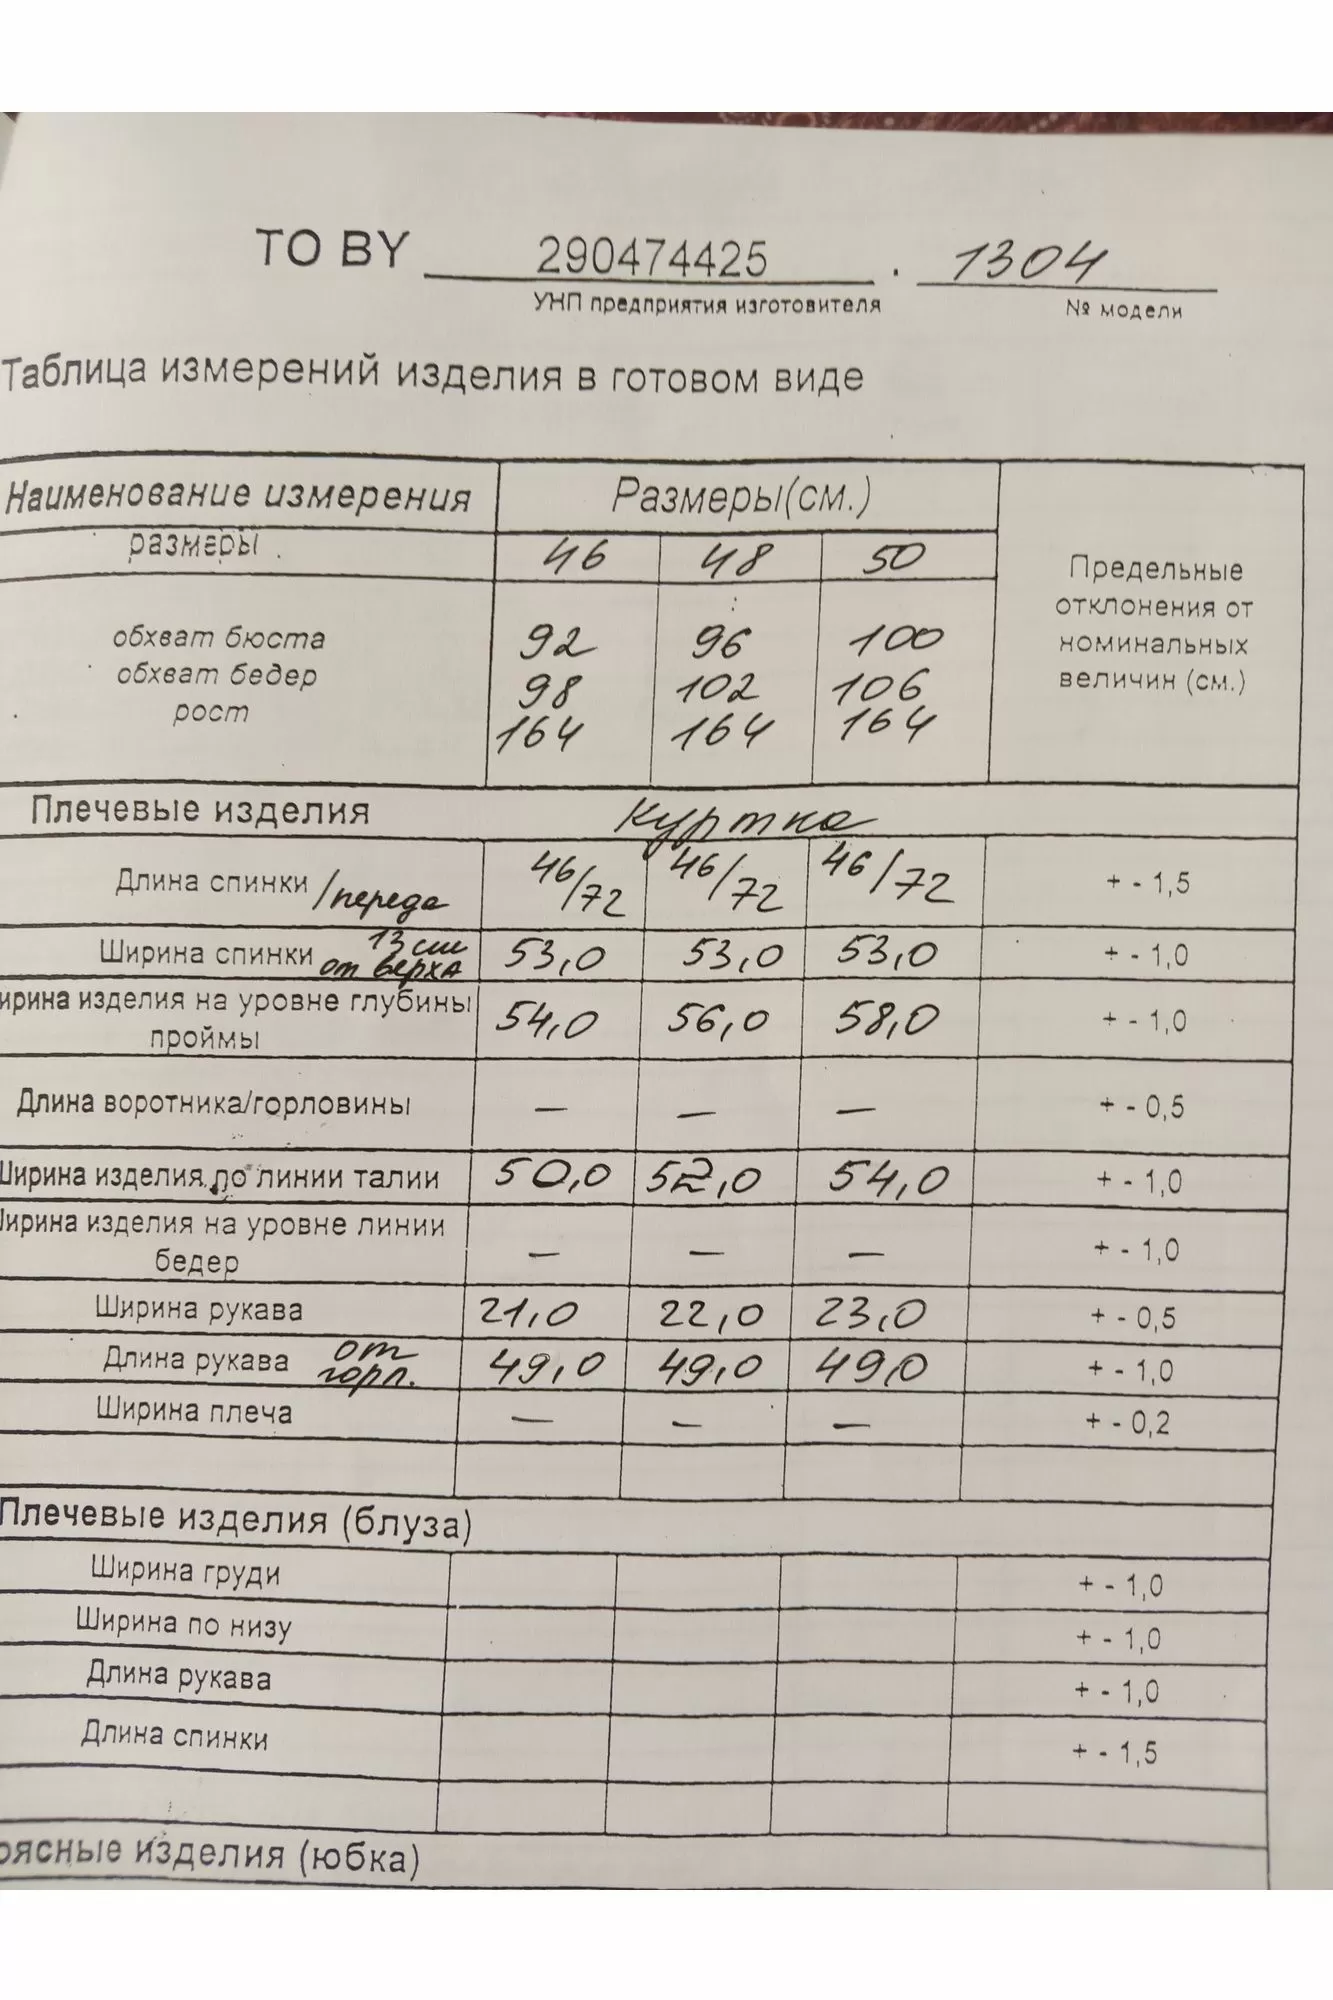 TO BY 290474425 . 1304
УНП предприятия изготовителя № модели
Таблица измерений изделия в готовом виде
Наименование измерения Размеры(см.) Предельные отклонения от номинальных величин (см.)
размеры 46 48 50
обхват бюста 92 96 100
обхват бедер 98 102 106
рост 164 164 164
Плечевые изделия куртка
Длина спинки /переда 46/72 46/72 46/72 + - 1,5
Ширина спинки 13 см от верха 53,0 53,0 53,0 + - 1,0
ирина изделия на уровне глубины проймы 54,0 56,0 58,0 + - 1,0
Длина воротника/горловины — — — + - 0,5
Ширина изделия по линии талии 50,0 52,0 54,0 + - 1,0
Ширина изделия на уровне линии бедер — — — + - 1,0
Ширина рукава 21,0 22,0 23,0 + - 0,5
Длина рукава от горл. 49,0 49,0 49,0 + - 1,0
Ширина плеча — — — + - 0,2
Плечевые изделия (блуза)
Ширина груди + - 1,0
Ширина по низу + - 1,0
Длина рукава + - 1,0
Длина спинки + - 1,5
оясные изделия (юбка)